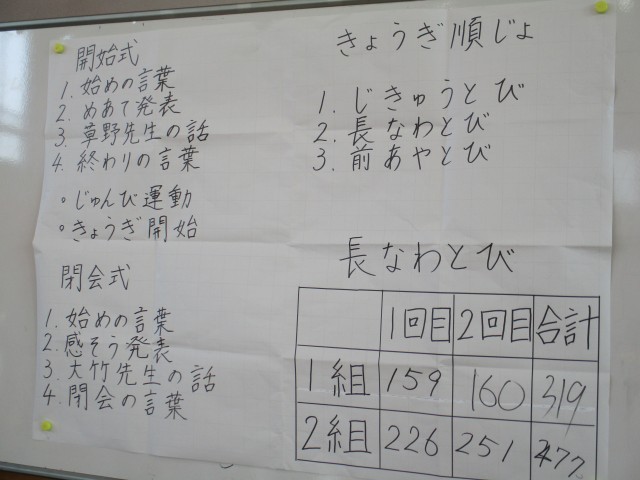 開始式
1. 始めの言葉
2. めあて発表
3. 草野先生の話
4. 終わりの言葉
・じゅんび運動
・きょうぎ開始
閉会式
1. 始めの言葉
2. 感そう発表
3. 大竹先生の話
4. 閉会の言葉
きょうぎ順じょ
1. じきゅうとび
2. 長なわとび
3. 前あやとび
長なわとび
1回目 2回目 合計
1組 159 160 319
2組 226 251 477